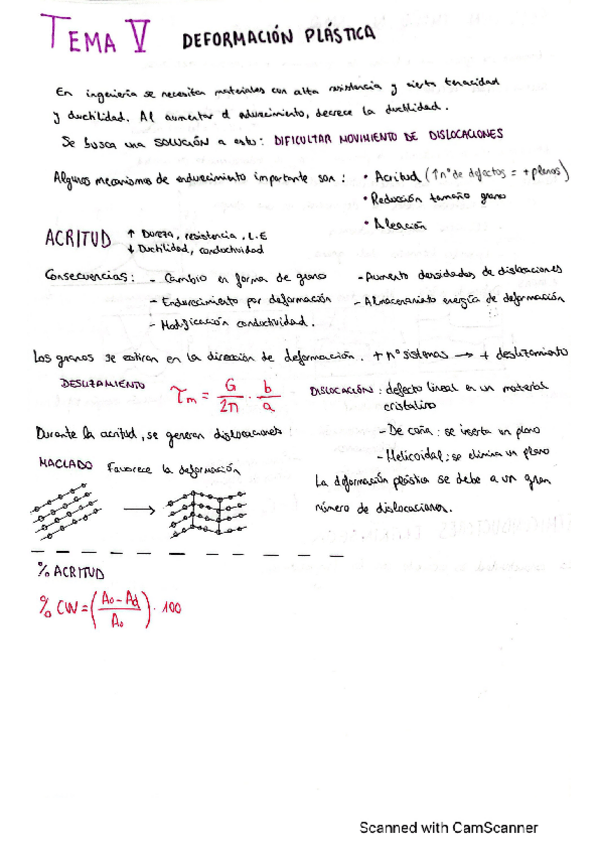 TEMA V DEFORMACIÓN PLÁSTICA
En ingeniería se necesitan materiales con alta resistencia y cierta tenacidad
y ductilidad. Al aumentar el endurecimiento, decrece la ductilidad.
Se busca una SOLUCIÓN a esto: DIFICULTAR MOVIMIENTO DE DISLOCACIONES
Algunos mecanismos de endurecimiento importante son: • Acritud (↑ nº de defectos = + planos)
• Reducción tamaño grano
• Aleación
ACRITUD ↑ Dureza, resistencia, L.E
↓ Ductilidad, conductividad
Consecuencias: - Cambio en forma de grano - Aumento densidades de dislocaciones
- Endurecimiento por deformación - Almacenamiento energía de deformación
- Modificación conductividad.
Los granos se estiran en la dirección de deformación. + nº sistemas → + deslizamiento
DESLIZAMIENTO τm = G/2π · b/a DISLOCACIÓN: defecto lineal en un material
cristalino
Durante la acritud, se generan dislocaciones - De cuña: se inserta un plano
- Helicoidal: se elimina un plano
MACLADO Favorece la deformación
La deformación plástica se debe a un gran
número de dislocaciones.
% ACRITUD
% CW = (A₀ - Ad / A₀) · 100
Scanned with CamScanner